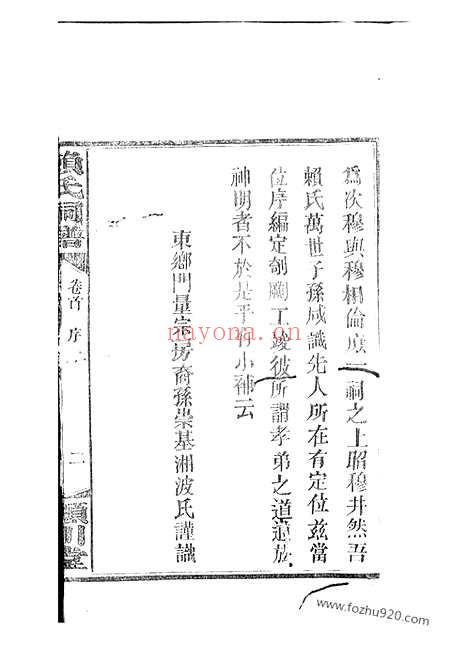 爲次穆與穆相倫庶一祠之上昭穆井然吾
賴氏萬世子孫咸識先人所在有定位兹當
位序編定剞劂工竣彼所謂孝弟之道通於
神明者不於是乎有小補云
東鄉門量宗房裔孫崇基湘波氏謹識
賴氏祠譜
卷首 序
二
潁川堂
nayona.cn
www.fozhu920.com